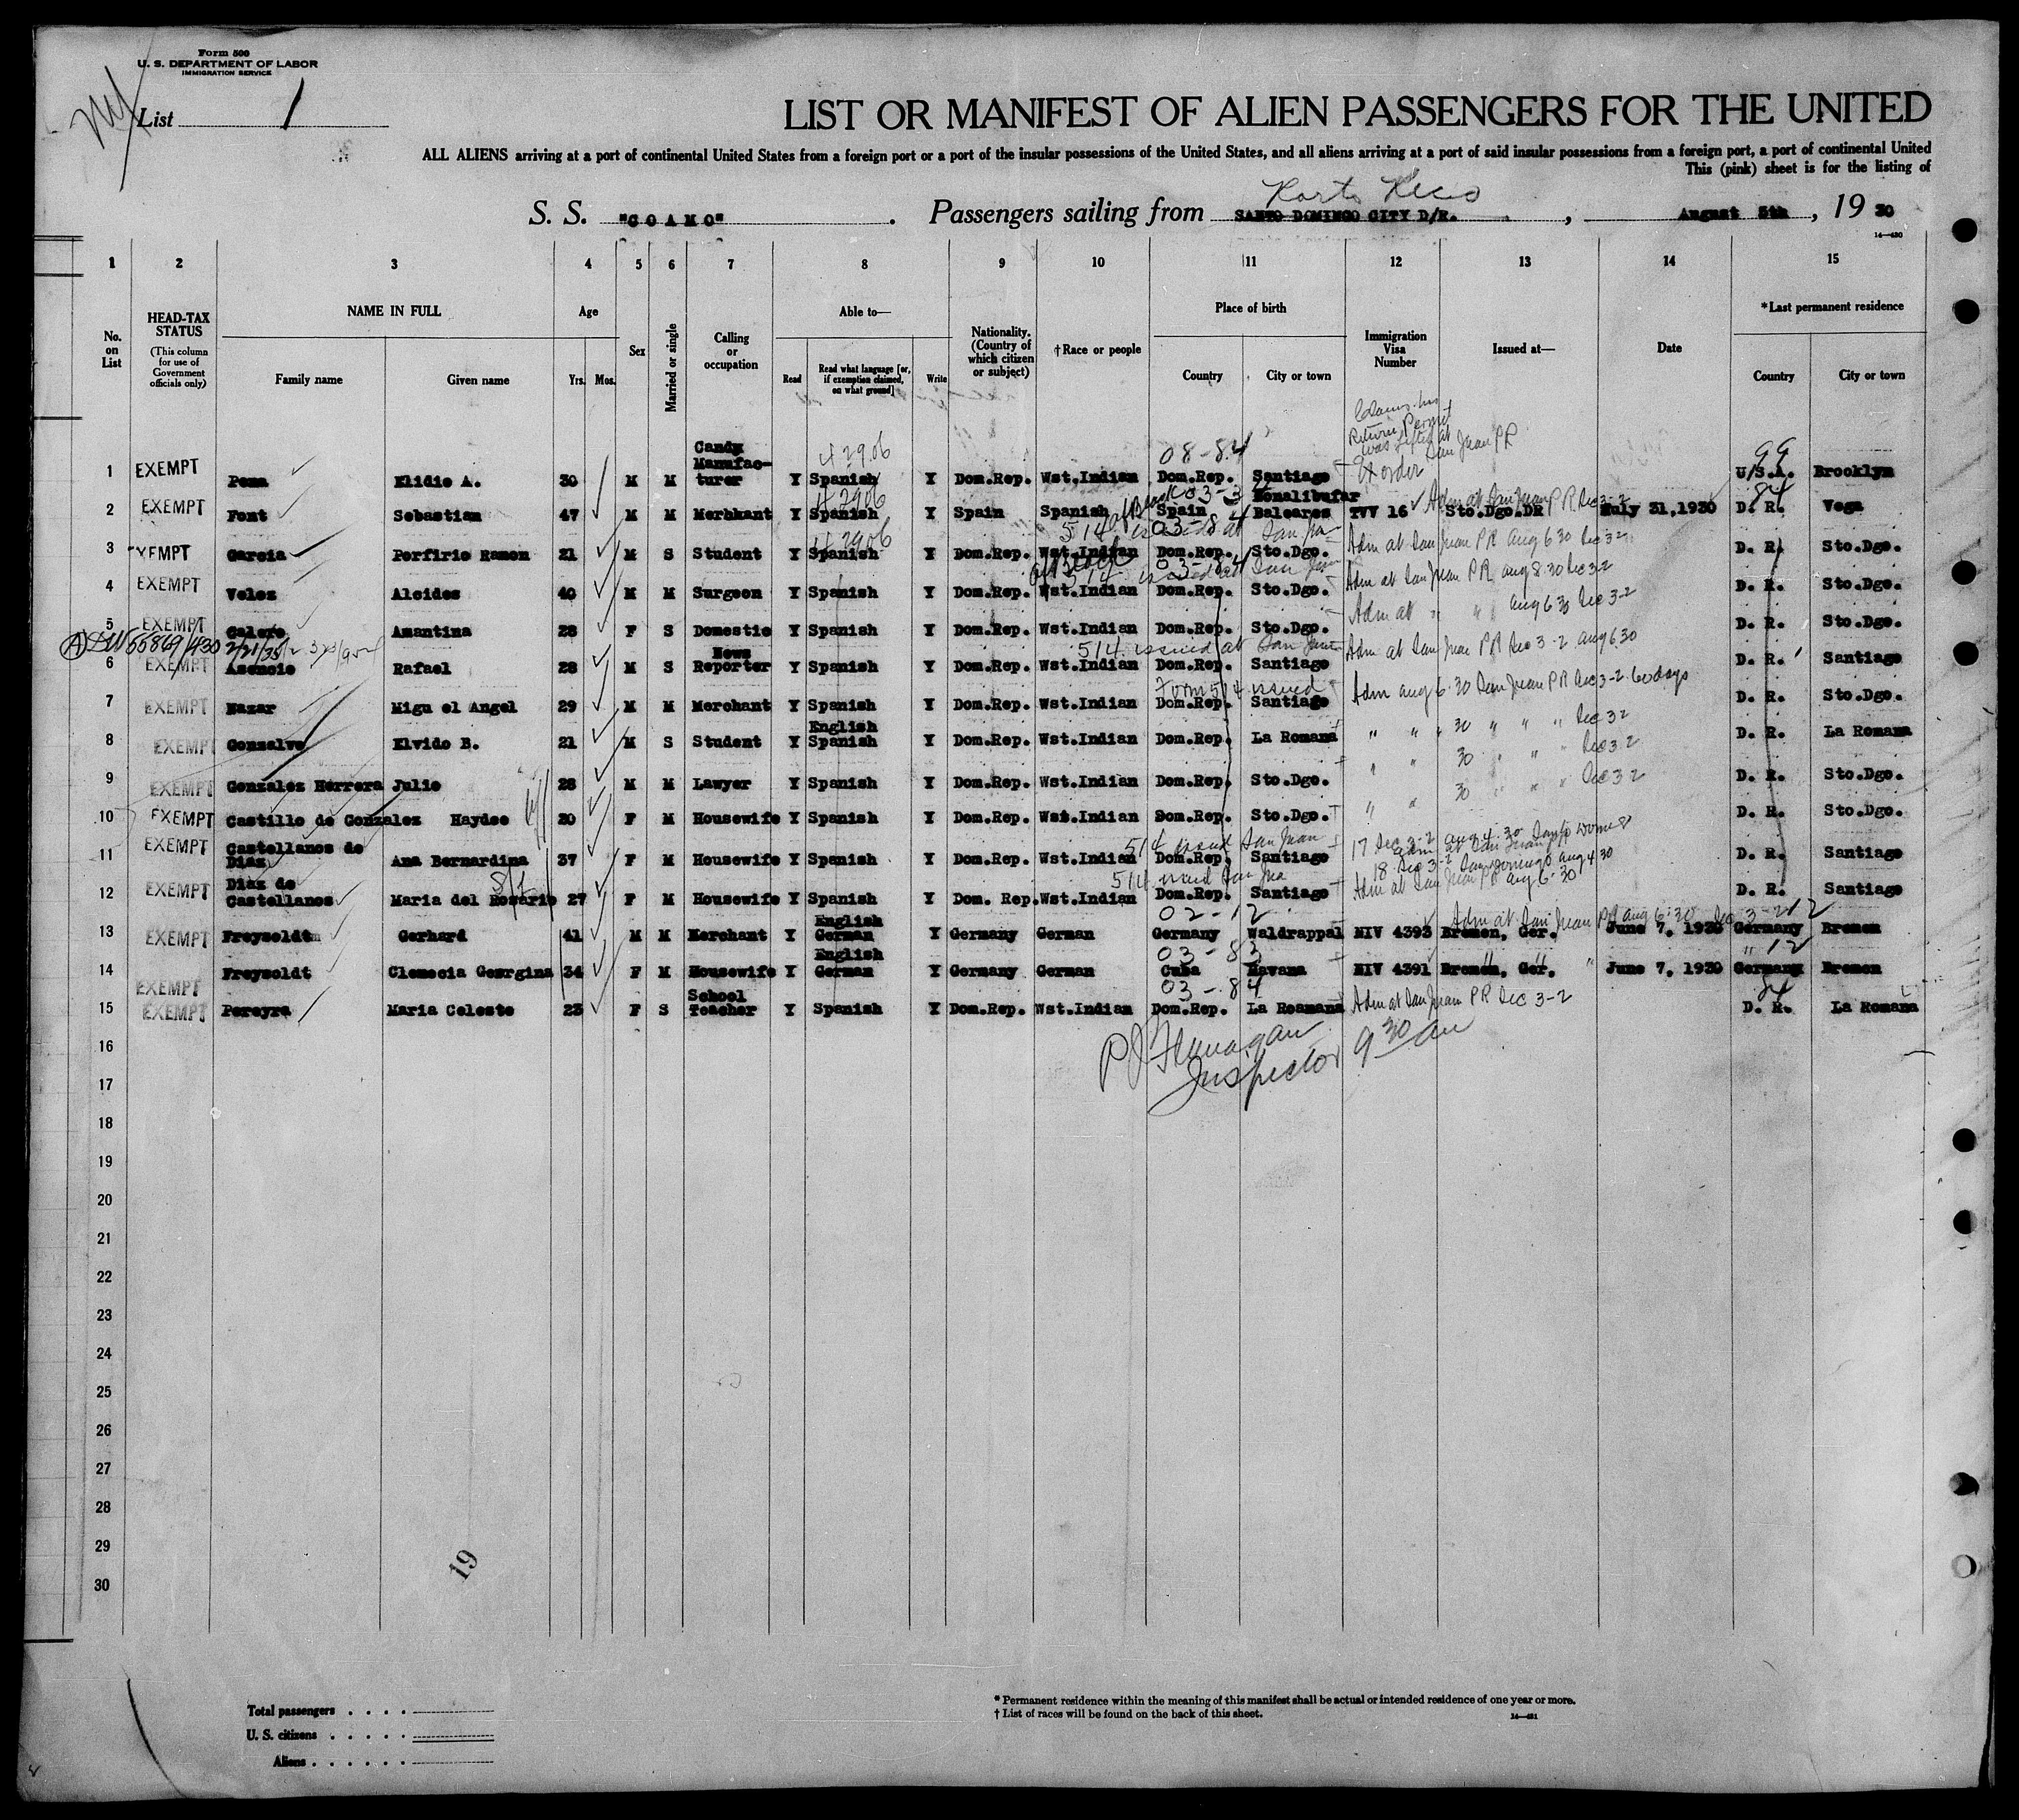 Form 500
U. S. DEPARTMENT OF LABOR
IMMIGRATION SERVICE
List 1
LIST OR MANIFEST OF ALIEN PASSENGERS FOR THE UNITED
ALL ALIENS arriving at a port of continental United States from a foreign port or a port of the insular possessions of the United States, and all aliens arriving at a port of said insular possessions from a foreign port, a port of continental United
This (pink) sheet is for the listing of
Porto Rico
S. S. "COAMO". Passengers sailing from SANTO DOMINGO CITY D/R. , August 5th, 19 30
14—430
1 2 3 4 5 6 7 8 9 10 11 12 13 14 15
No. on List
HEAD-TAX STATUS
(This column for use of Government officials only)
NAME IN FULL
Family name Given name
Age
Yrs. Mos.
Sex
Married or single
Calling or occupation
Able to—
Read Read what language [or, if exemption claimed, on what ground] Write
Nationality. (Country of which citizen or subject)
†Race or people
Place of birth
Country City or town
Immigration Visa Number
Issued at—
Date
*Last permanent residence
Country City or town
Return Permit
was lifted at
San Juan PR
42906 08-84 99
1 EXEMPT Pena Elidio A. 30 M M Candy Manufac-turer Y Spanish Y Dom.Rep. Wst.Indian Dom.Rep. Santiago U/S.A. Brooklyn
42906 03-3 84
2 EXEMPT Font Sebastian 47 M M Merhkant Y Spanish Y Spain Spanish Spain Bonalibufar Baleares TVV 16 Sto.Dgo.DR July 31,1930 D. R. Vega
Adm at San Juan PR Dec 3-2
42906 514 issued at San Jua 03-84
3 EXEMPT Garcia Porfirio Ramon 21 M S Student Y Spanish Y Dom.Rep. Wst.Indian Dom.Rep. Sto.Dgo. Adm at San Juan PR Aug 6 30 Dec 3-2 D. R. Sto.Dgo.
514 issued at San Juan 03-84
4 EXEMPT Velez Alcides 40 M M Surgeon Y Spanish Y Dom.Rep. Wst.Indian Dom.Rep. Sto.Dgo. Adm at San Juan PR Aug 8 30 Dec 3-2 D. R. Sto.Dgo.
5 EXEMPT Calero Amantina 28 F S Domestic Y Spanish Y Dom.Rep. Wst.Indian Dom.Rep. Sto.Dgo. Adm at " " Aug 6 30 Dec 3-2 D. R. Sto.Dgo.
2/21/35
514 issued at San Juan
6 EXEMPT Asencio Rafael 28 M S News Reporter Y Spanish Y Dom.Rep. Wst.Indian Dom.Rep. Santiago Adm at San Juan PR Dec 3-2 Aug 6.30 D. R. Santiago
Form 514 issued
7 EXEMPT Nazar Migu el Angel 29 M M Merchant Y Spanish Y Dom.Rep. Wst.Indian Dom.Rep. Santiago Adm Aug 6.30 San Juan PR Dec 3-2 60 days D. R. Sto.Dgo.
8 EXEMPT Gonzalvo Elvido B. 21 M S Student Y English Spanish Y Dom.Rep. Wst.Indian Dom.Rep. La Romana " " " 30 " " " Dec 3 2 D. R. La Romana
9 EXEMPT Gonzalez Herrera Julio 28 M M Lawyer Y Spanish Y Dom.Rep. Wst.Indian Dom.Rep. Sto.Dgo. " " 30 " " Dec 3 2 D. R. Sto.Dgo.
10 EXEMPT Castillo de Gonzalez Haydee 20 F M Housewife Y Spanish Y Dom.Rep. Wst.Indian Dom.Rep. Sto.Dgo. " " 30 " " " Dec 3 2 D. R. Sto.Dgo.
514 issued San Juan
11 EXEMPT Castellanos de Diaz Ana Bernardina 37 F M Housewife Y Spanish Y Dom.Rep. Wst.Indian Dom.Rep. Santiago D. R. Santiago
514 issued San Jua
12 EXEMPT Diaz de Castellanos Maria del Rosario 27 F M Housewife Y Spanish Y Dom. Rep. Wst.Indian Dom.Rep. Santiago Adm at San Juan PR Aug 6-30 D. R. Santiago
02-12 Adm at San Juan PR Aug 6:30 Dec 3-2 12
13 EXEMPT Freysoldt Gerhard 41 M M Merchant Y English German Y Germany German Germany Waldrappal NIV 4393 Bremen, Ger. June 7, 1930 Germany Bremen
03-83 " 12
14 EXEMPT Freysoldt Clemecia Georgina 34 F M Housewife Y English German Y Germany German Cuba Havana NIV 4391 Bremen, Ger. June 7, 1930 Germany Bremen
03-84 84
15 EXEMPT Pereyra Maria Celeste 23 F S School Teacher Y Spanish Y Dom.Rep. Wst.Indian Dom.Rep. La Roamana Adm at San Juan PR Dec 3-2 D. R. La Romana
16
P J Flanagan
Inspector 9 30 am
17
18
19
20
21
22
23
24
25
26
27
28
29
30
19
Total passengers . . . .
U. S. citizens . . . . .
Aliens . . . . . .
* Permanent residence within the meaning of this manifest shall be actual or intended residence of one year or more.
† List of races will be found on the back of this sheet.
14—431